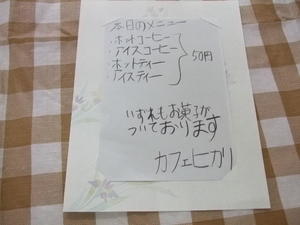 本日のメニュー
・ホットコーヒー
・アイスコーヒー
・ホットティー
・アイスティー
50円
いずれもお菓子が
ついております
カフェヒカリ